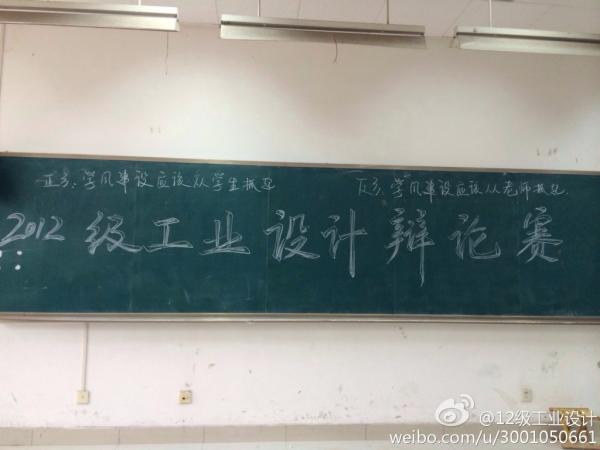 正方：学风建设应该从学生抓起
反方：学风建设应该从老师抓起
2012级工业设计辩论赛
@12级工业设计
weibo.com/u/3001050661